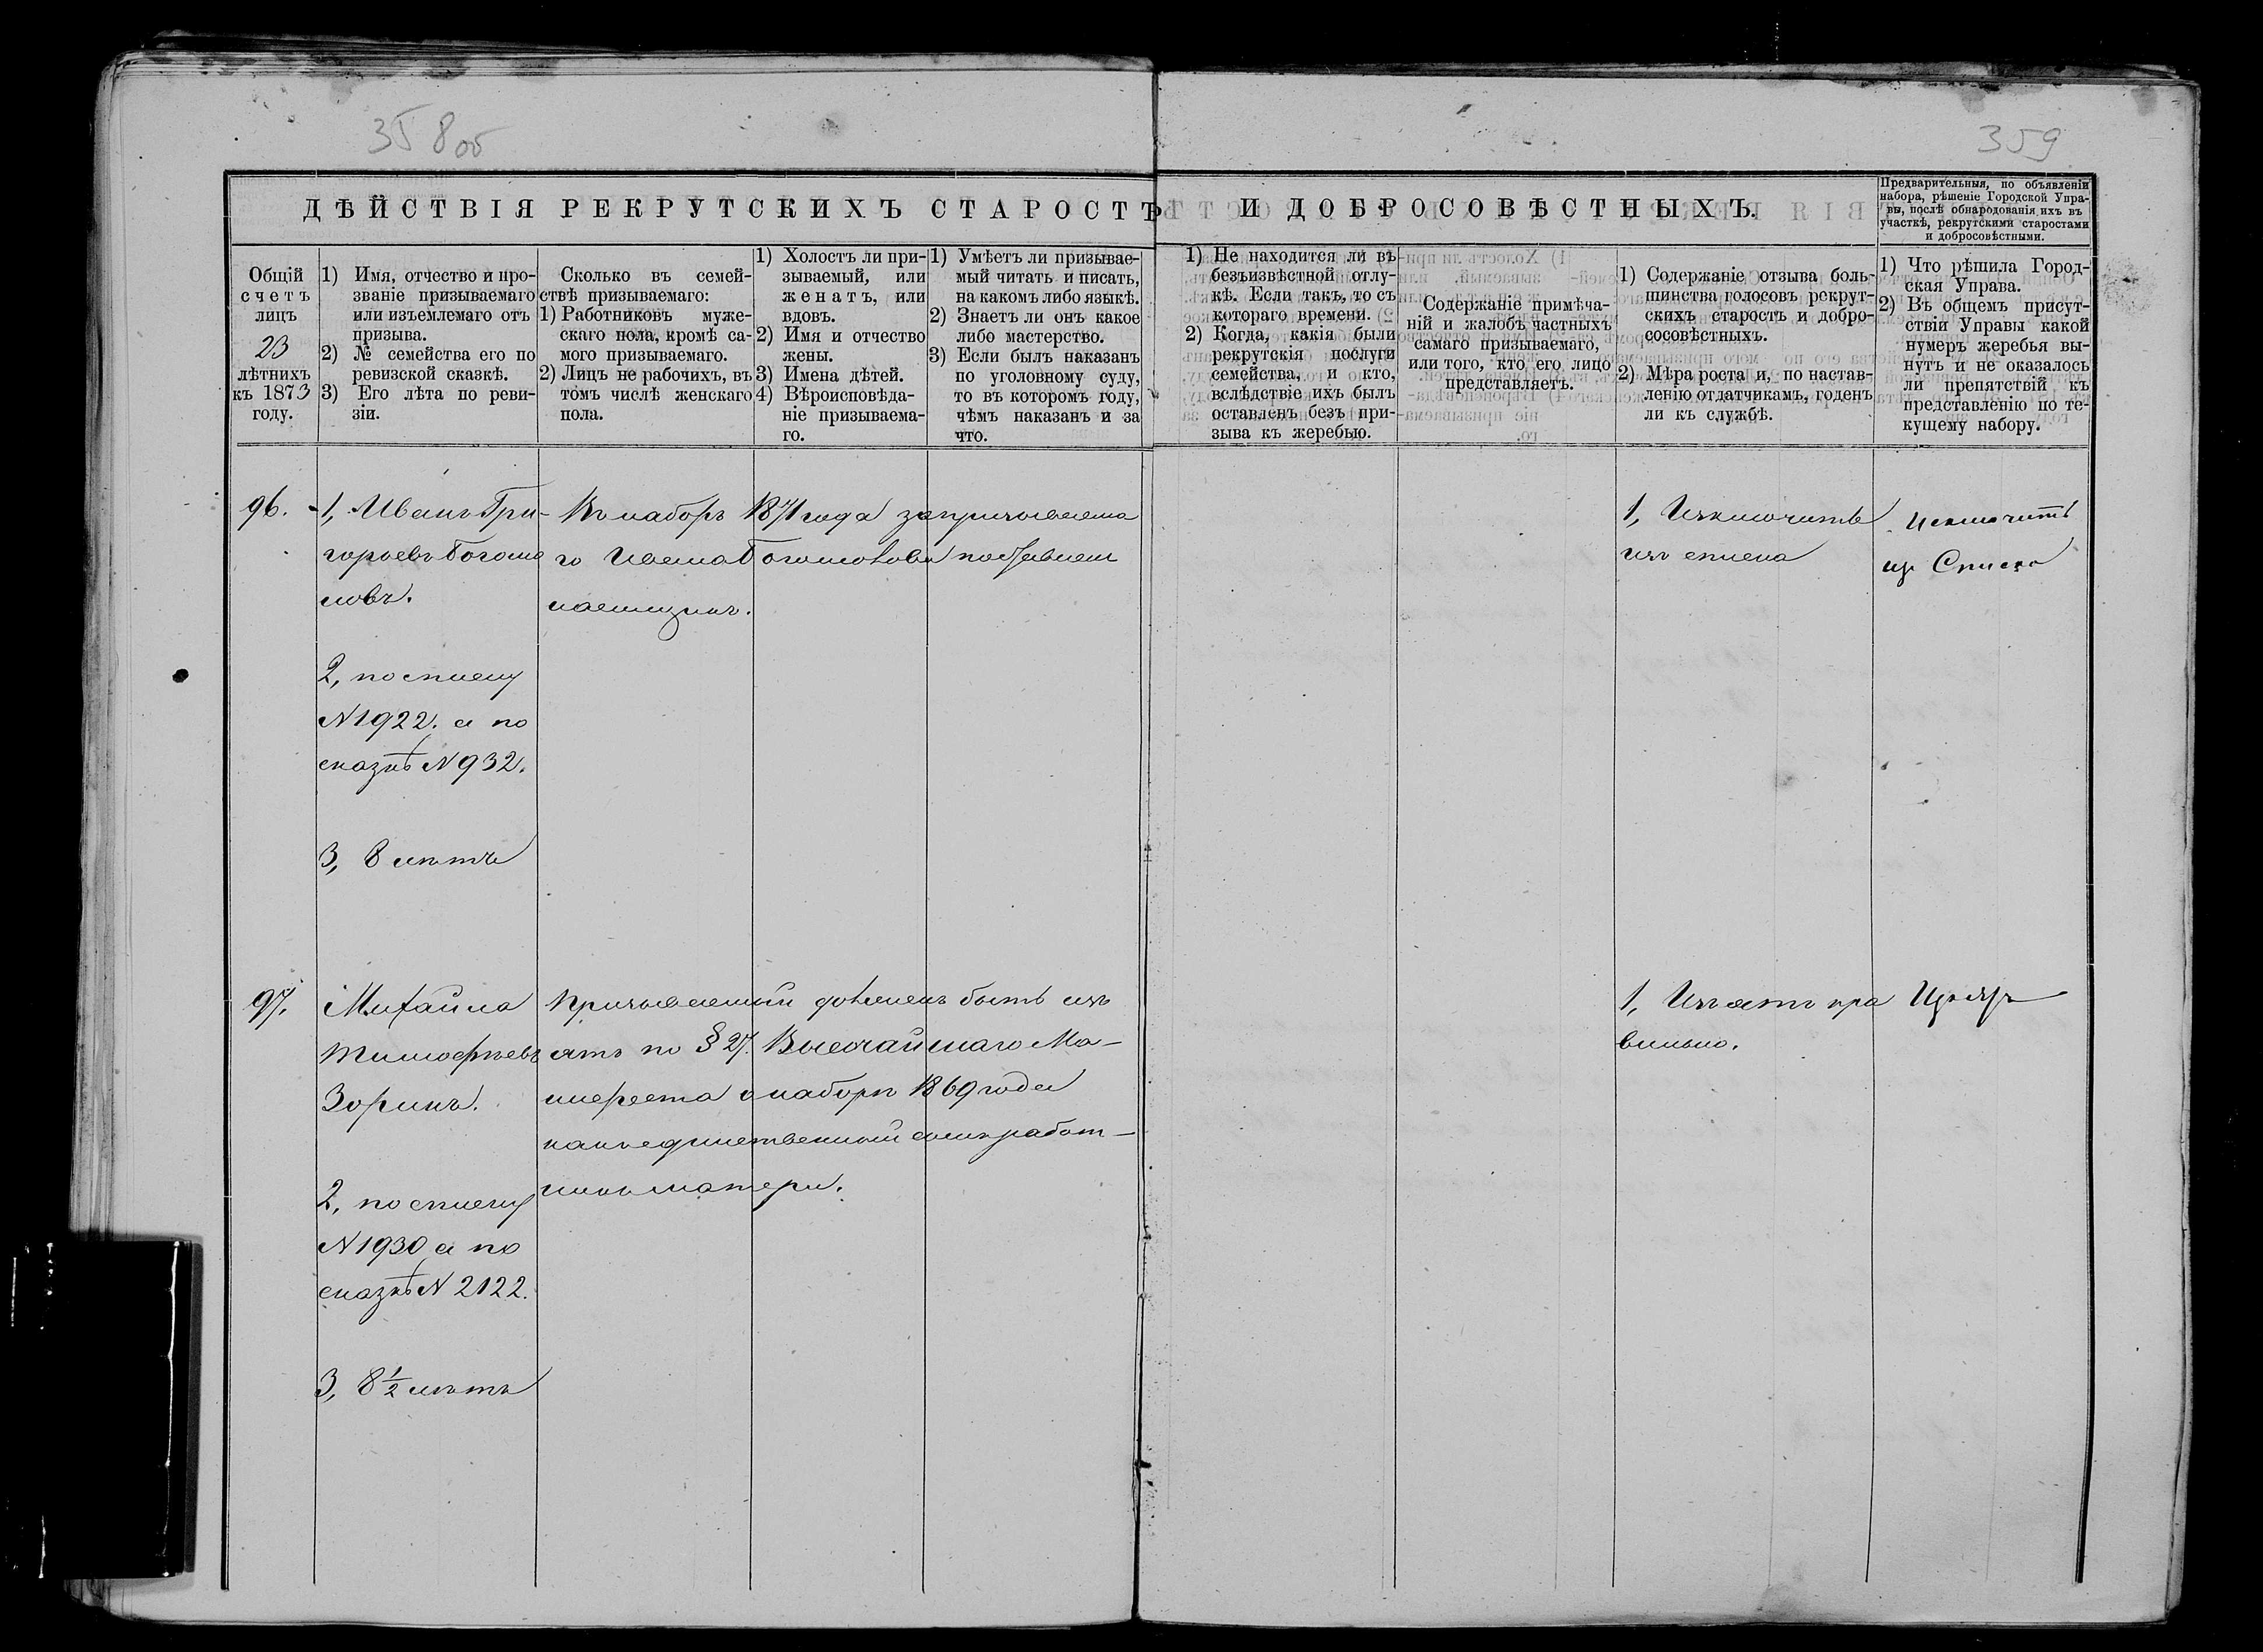 358 об
359
ДѢЙСТВІЯ РЕКРУТСКИХЪ СТАРОСТЪ И ДОБРОСОВѢСТНЫХЪ.
Предварительныя, по объявленіи
набора, рѣшеніе Городской Упра-
вы, послѣ обнародованія ихъ въ
участкѣ, рекрутскими старостами
и добросовѣстными.
Общій
счетъ
лицъ
23
лѣтнихъ
къ 1873
году.
1) Имя, отчество и про-
званіе призываемаго
или изъемлемаго отъ
призыва.
2) № семейства его по
ревизской сказкѣ.
3) Его лѣта по реви-
зіи.
Сколько въ семей-
ствѣ призываемаго:
1) Работниковъ муже-
скаго пола, кромѣ са-
мого призываемаго.
2) Лицъ не рабочихъ, въ
томъ числѣ женскаго
пола.
1) Холостъ ли при-
зываемый, или
женатъ, или
вдовъ.
2) Имя и отчество
жены.
3) Имена дѣтей.
4) Вѣроисповѣда-
ніе призываема-
го.
1) Умѣетъ ли призывае-
мый читать и писать,
на какомъ либо языкѣ.
2) Знаетъ ли онъ какое
либо мастерство.
3) Если былъ наказанъ
по уголовному суду,
то въ которомъ году,
чѣмъ наказанъ и за
что.
1) Не находится ли въ
безъизвѣстной отлу-
кѣ. Если такъ, то съ
котораго времени.
2) Когда, какія были
рекрутскія послуги
семейства, и кто,
вслѣдствіе ихъ былъ
оставленъ безъ при-
зыва къ жеребью.
Содержаніе примѣча-
ній и жалобъ частныхъ
самаго призываемаго,
или того, кто его лицо
представляетъ.
1) Содержаніе отзыва боль-
шинства голосовъ рекрут-
скихъ старостъ и добро-
сосовѣстныхъ.
2) Мѣра роста и, по настав-
ленію отдатчикамъ, годенъ
ли къ службѣ.
1) Что рѣшила Город-
ская Управа.
2) Въ общемъ присут-
ствіи Управы какой
нумеръ жеребья вы-
нутъ и не оказалось
ли препятствій къ
представленію по те-
кущему набору.
96.
1, Иванъ Гри-
горьевъ Богомо
ловъ.
2, по списку
N 1922. а по
сказкѣ N 932.
3, 8 лѣтъ
Въ наборъ 1871 года за призываема
го Ивана Богомолова поставленъ
наемщикъ.
1, Изключить
изъ списка
Исключить
из Списка
97.
Михайла
Тимофѣевъ
Зоринъ.
2, по списку
N 1930 а по
сказкѣ N 2122.
3, 8 1/2 лѣтъ
Призываемый долженъ быть изъ
ятъ по § 27. Высочайшаго Ма-
нифеста о наборѣ 1869 года
какъ единственный сынъ работ-
никъ матери.
1, Изъятъ пра
вильно.
Изъятъ